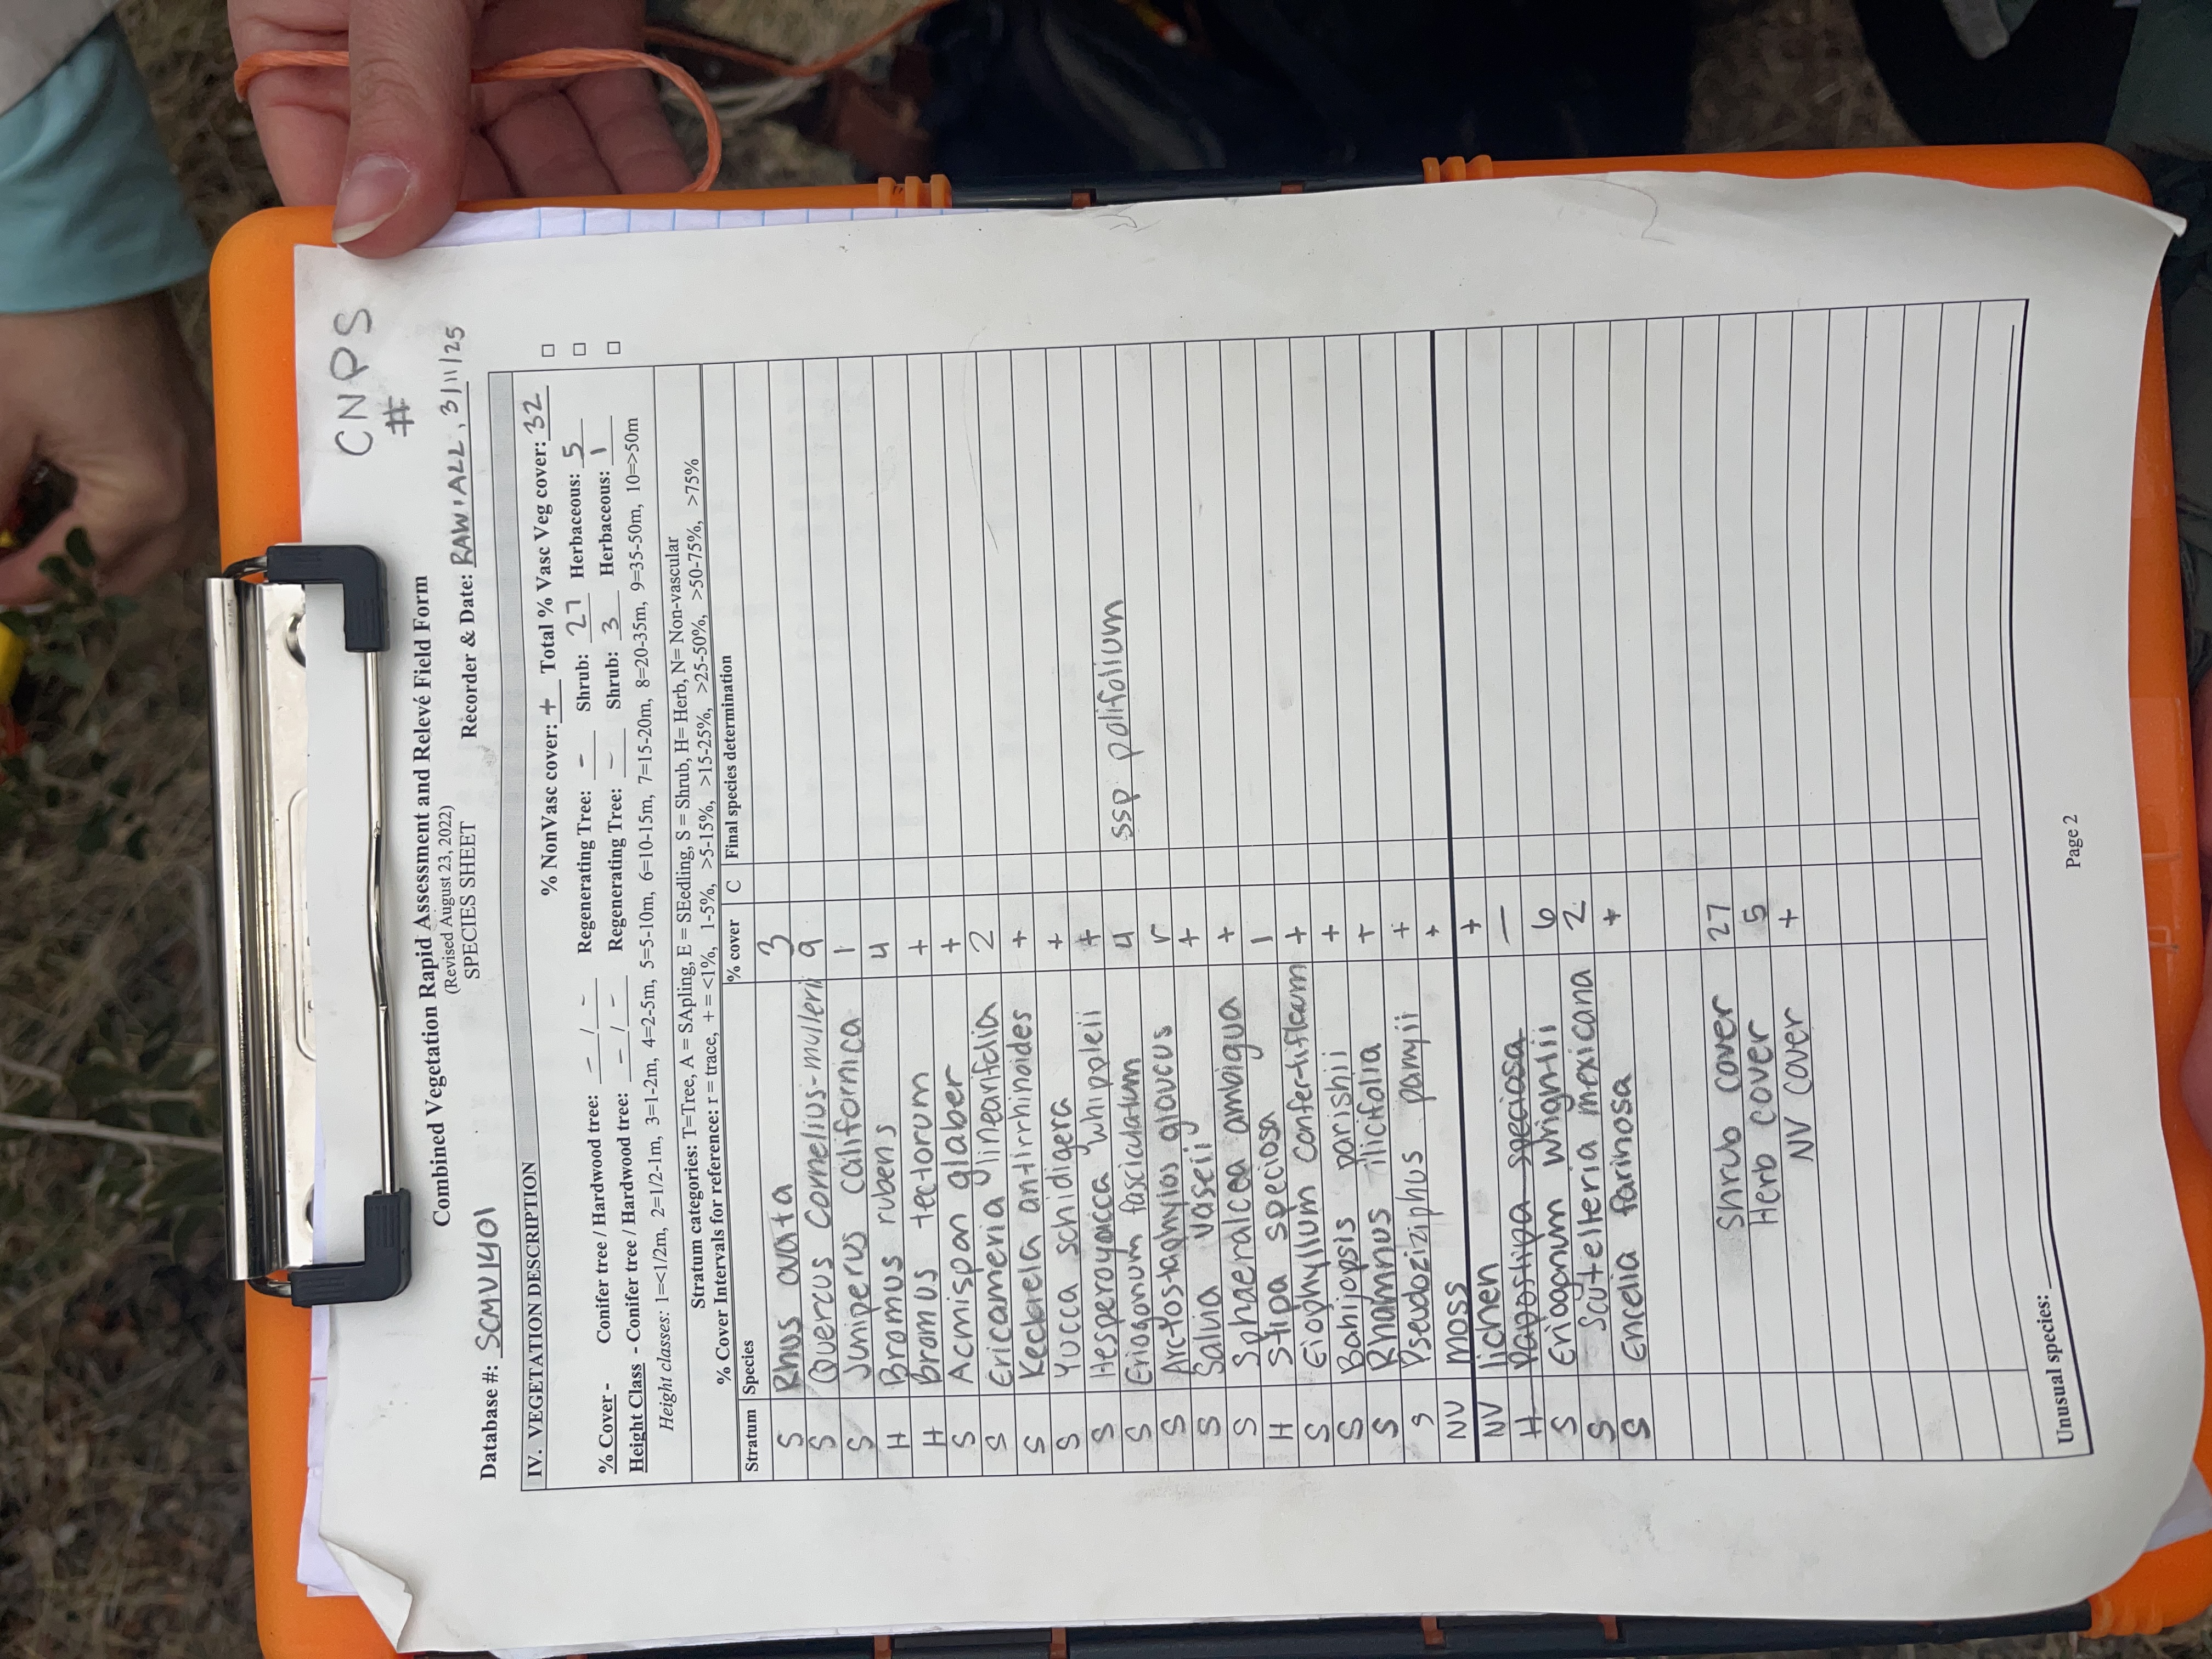 CNPS
#
Combined Vegetation Rapid Assessment and Relevé Field Form
(Revised August 23, 2022)
SPECIES SHEET
Database #: SCMV1401 Recorder & Date: RAW, ALL, 3/11/25
IV. VEGETATION DESCRIPTION
% NonVasc cover: + Total % Vasc Veg cover: 32 □
% Cover - Conifer tree / Hardwood tree: - / - Regenerating Tree: - Shrub: 27 Herbaceous: 5 □
Height Class - Conifer tree / Hardwood tree: - / - Regenerating Tree: - Shrub: 3 Herbaceous: 1 □
Height classes: 1=<1/2m, 2=1/2-1m, 3=1-2m, 4=2-5m, 5=5-10m, 6=10-15m, 7=15-20m, 8=20-35m, 9=35-50m, 10=>50m
Stratum categories: T=Tree, A = SApling, E = SEedling, S = Shrub, H= Herb, N= Non-vascular
% Cover Intervals for reference: r = trace, + = <1%, 1-5%, >5-15%, >15-25%, >25-50%, >50-75%, >75%
Stratum Species % cover C Final species determination
S Rhus ovata 3
S Quercus cornelius-mulleri 9
S Juniperus californica 1
H Bromus rubens 4
H Bromus tectorum +
S Acmispon glaber +
S Ericameria linearifolia 2
S Keckiela antirrhinoides +
S Yucca schidigera +
S Hesperoyucca whippleii +
S Eriogonum fasciculatum 4 ssp polifolium
S Arctostaphylos glaucus r
S Salvia vaseii +
S Sphaeralcea ambigua +
H Stipa speciosa 1
S Eriophyllum confertiflorum +
S Bahijopsis parishii +
S Rhamnus illicifolia +
S Pseudoziziphus parryii +
NV moss +
NV lichen +
H Pappostipa speciosa —
S Eriogonum wrightii 6
S Scutelleria mexicana 2
S Encelia farinosa +
Shrub cover 27
Herb cover 5
NV cover +
Unusual species:
Page 2